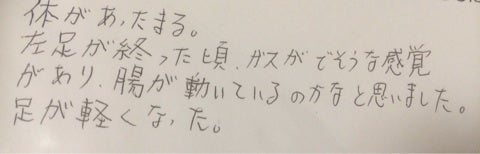 体があったまる。
左足が終った頃、ガスがでそうな感覚
があり、腸が動いているのかなと思いました。
足が軽くなった。